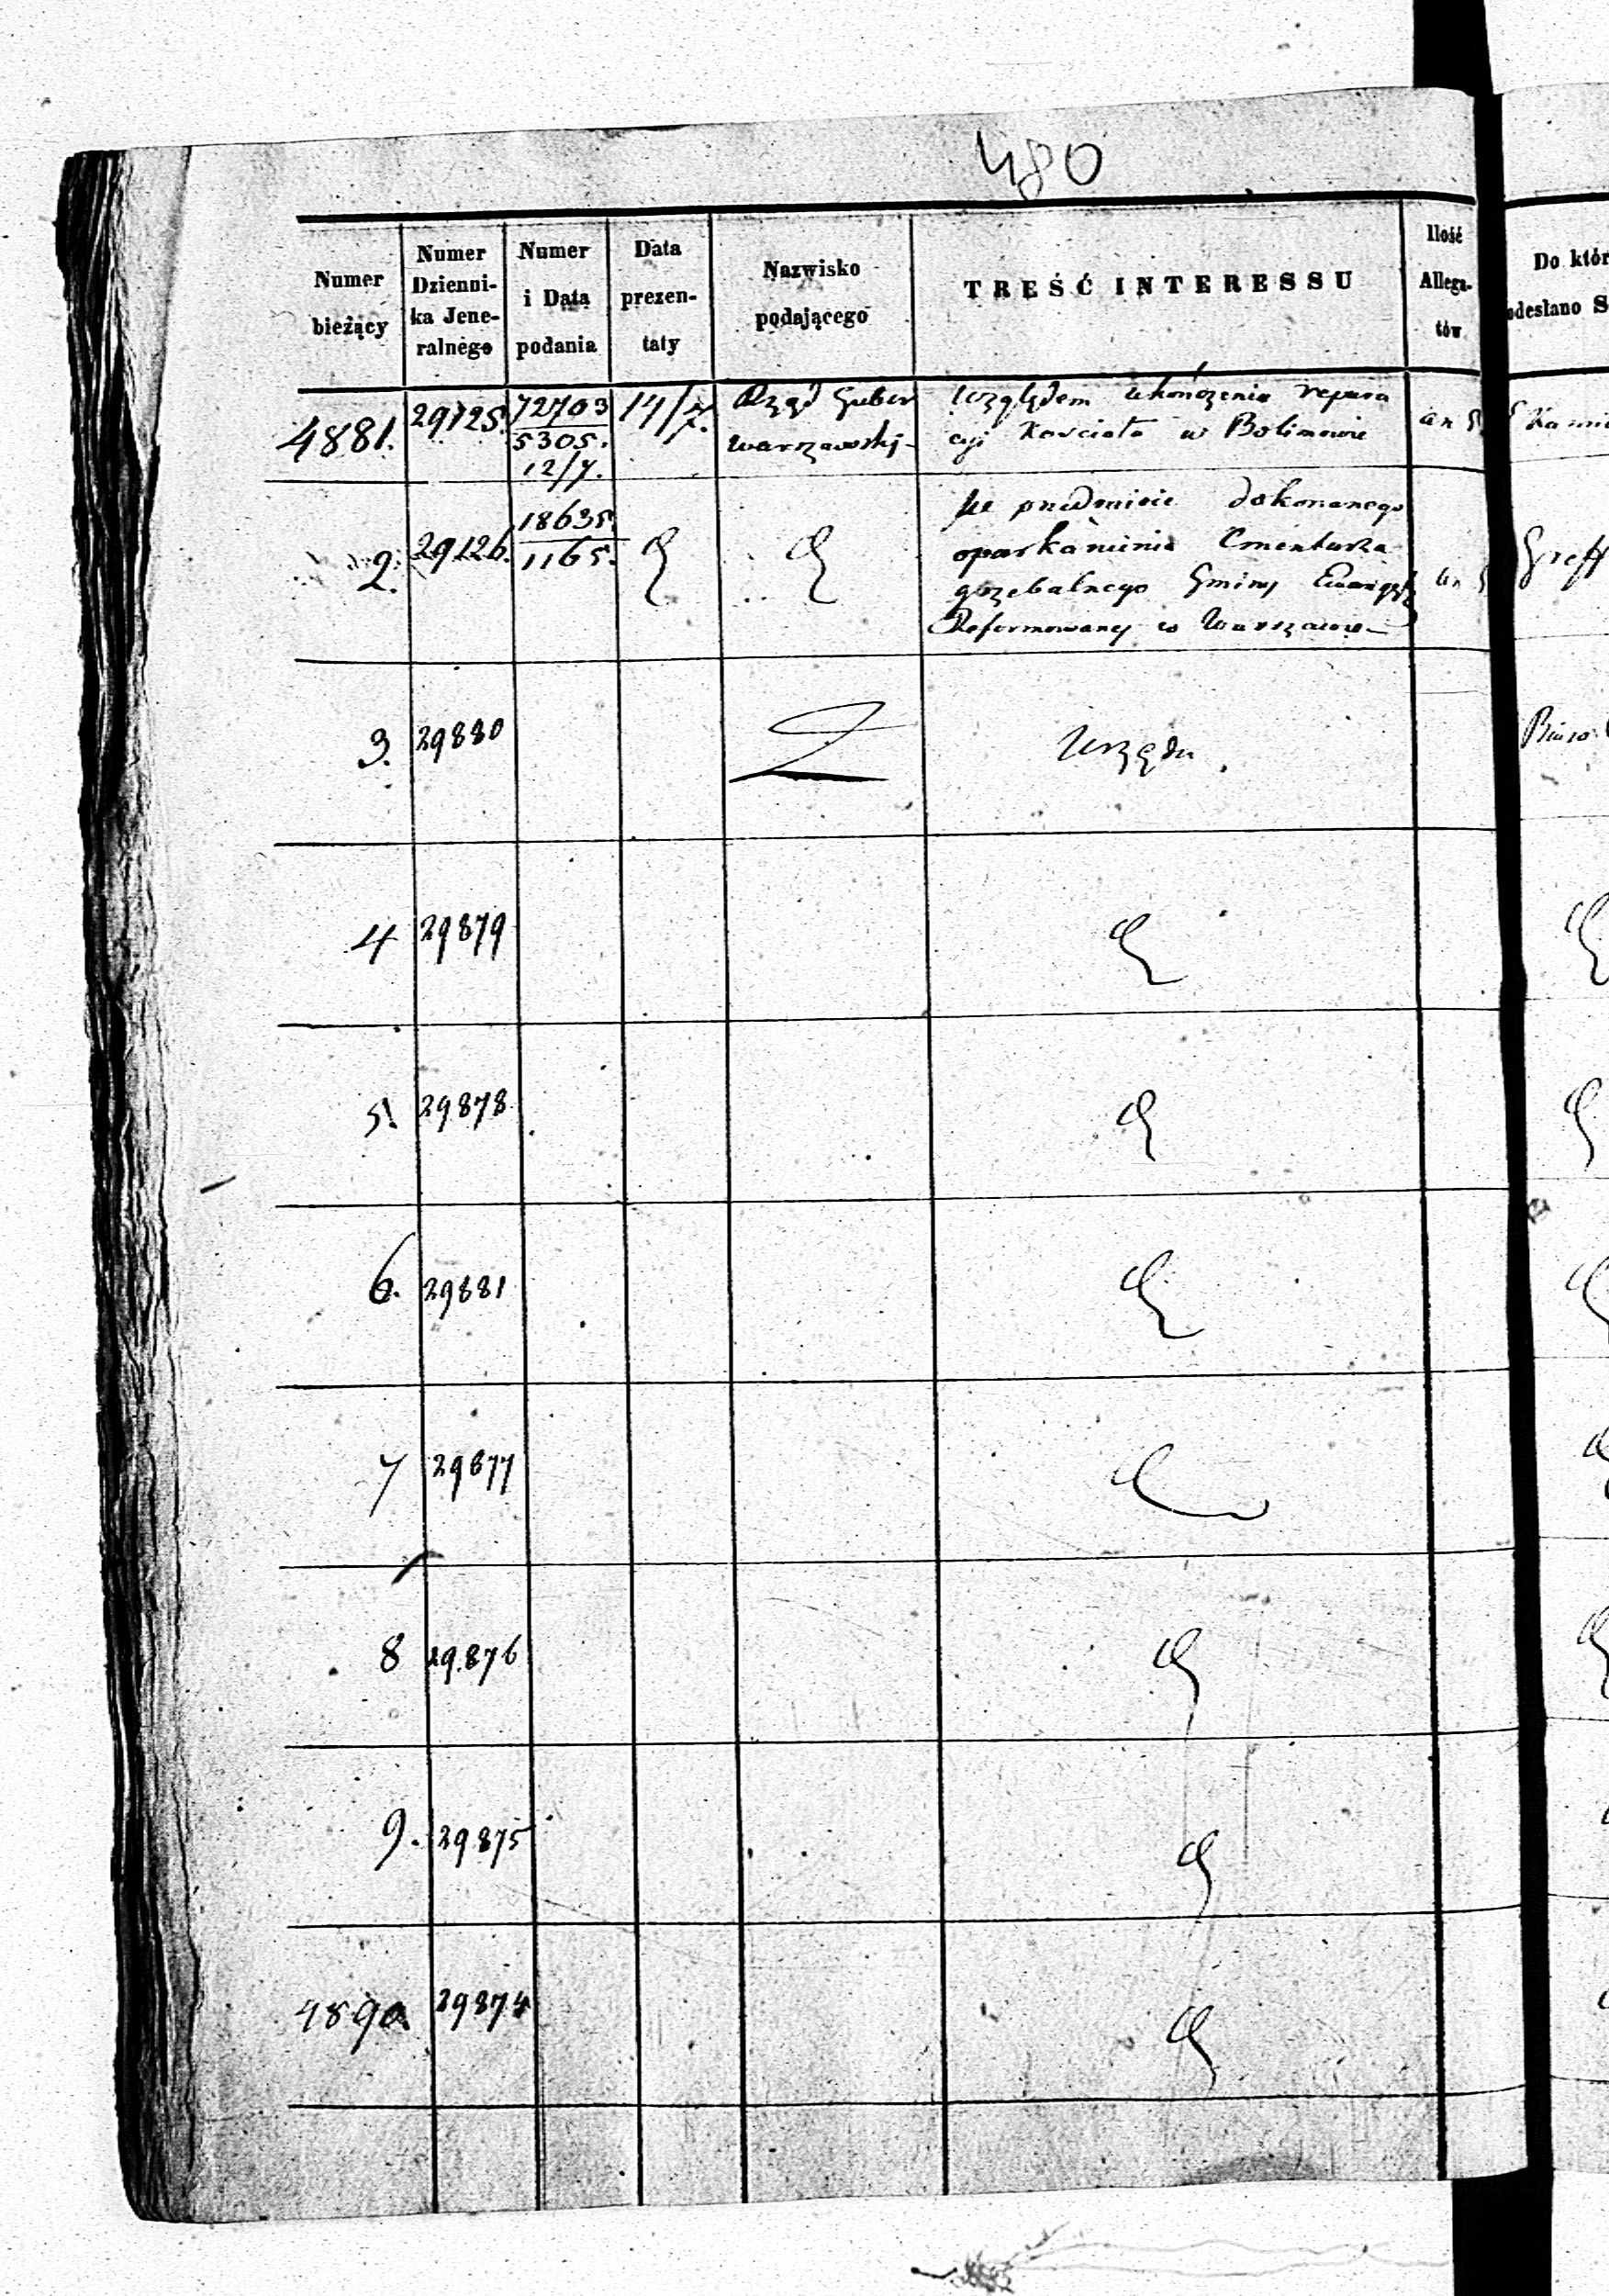 480
Numer bieżący
Numer Dzienni-ka Jene-ralnego
Numer i Data podania
Data prezen-taty
Nazwisko podającego
TREŚĆ INTERESSU
Ilość Allega-tów
Do któr
odesłano S
4881. 29125. 72703 14/7. Rząd Guber Względem ukończenia repara an
5305. Warszawski cyi Kościoła w Bolimowie
12/7.
2. 29126. 18635 We przedmiocie dokonanego
1165. oparkanienia Cmentarza
grzebalnego Gminy
Reformowanej w Warszawie
3. 29880 Urzędu. Biuro
4 29879
5. 29878
6. 29881
7 29877
8 29876
9. 29875
4890. 29874